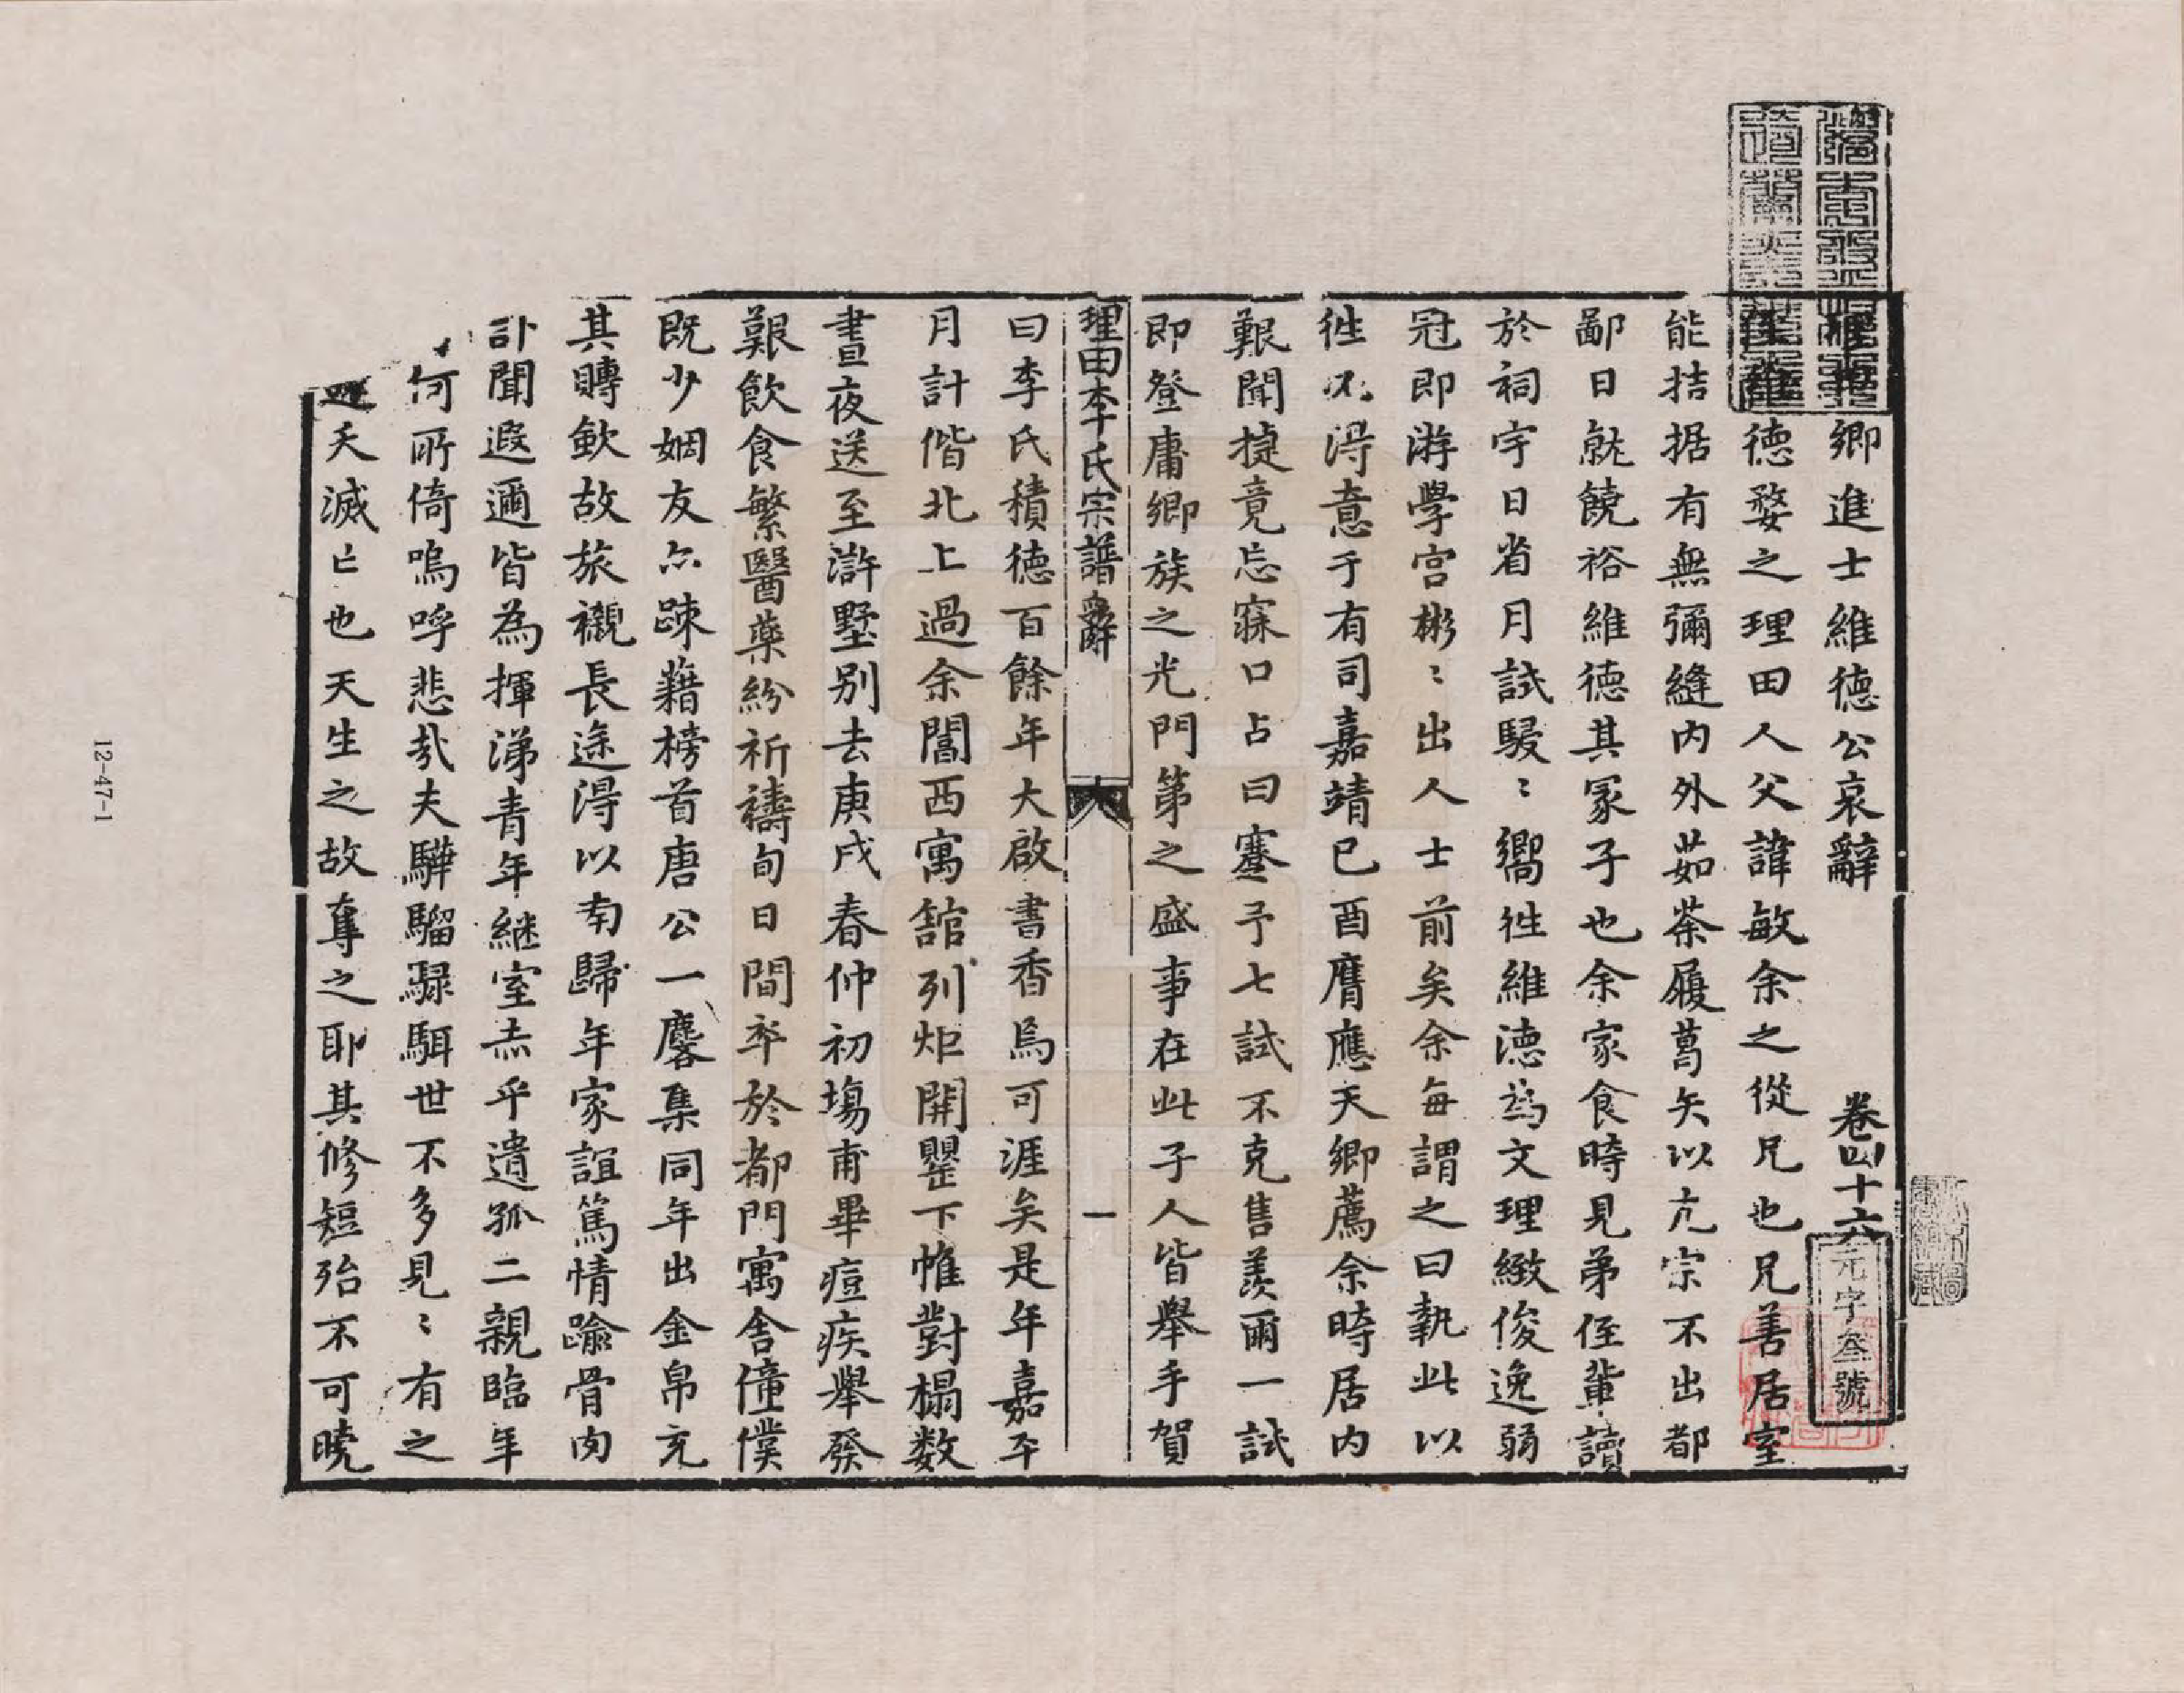 鄉進士維德公哀辭 卷四十六
元字叁號
維德婺之理田人父諱敏余之從兄也兄善居室
能拮据有無彌縫內外茹荼履葛矢以亢宗不出都
鄙日就饒裕維德其冢子也余家食時見弟侄輩讀
於祠宇日省月試駸〻嚮徃維德為文理緻俊逸弱
冠即游學宮彬〻出人士前矣余每謂之曰執此以
徃不淂意于有司嘉靖己酉膺應天鄉薦余時居内
艱聞捷竟忘寐口占曰蹇予七試不克售羡爾一試
即登庸鄉族之光門第之盛事在此子人皆舉手賀
理田李氏宗譜 辭 一
曰李氏積德百餘年大啟書香烏可涯矣是年嘉平
月計偕北上過余閶西寓舘列炬開罌下帷對榻数
晝夜送至滸墅別去庚戌春仲初場甫畢痘疾舉發
艱飲食繁醫藥紛祈禱旬日間卒於都門寓舍僮僕
既少姻友亦踈藉榜首唐公一麐集同年出金帛充
其賻斂故旅櫬長途淂以南歸年家誼篤情踰骨肉
訃聞遐邇皆為揮涕青年継室煢乎遺孤二親臨年
何所倚嗚呼悲㢤夫驊騮騄駬世不多見〻有之
夭滅亡也天生之故奪之耶其修短殆不可曉
12-47-1